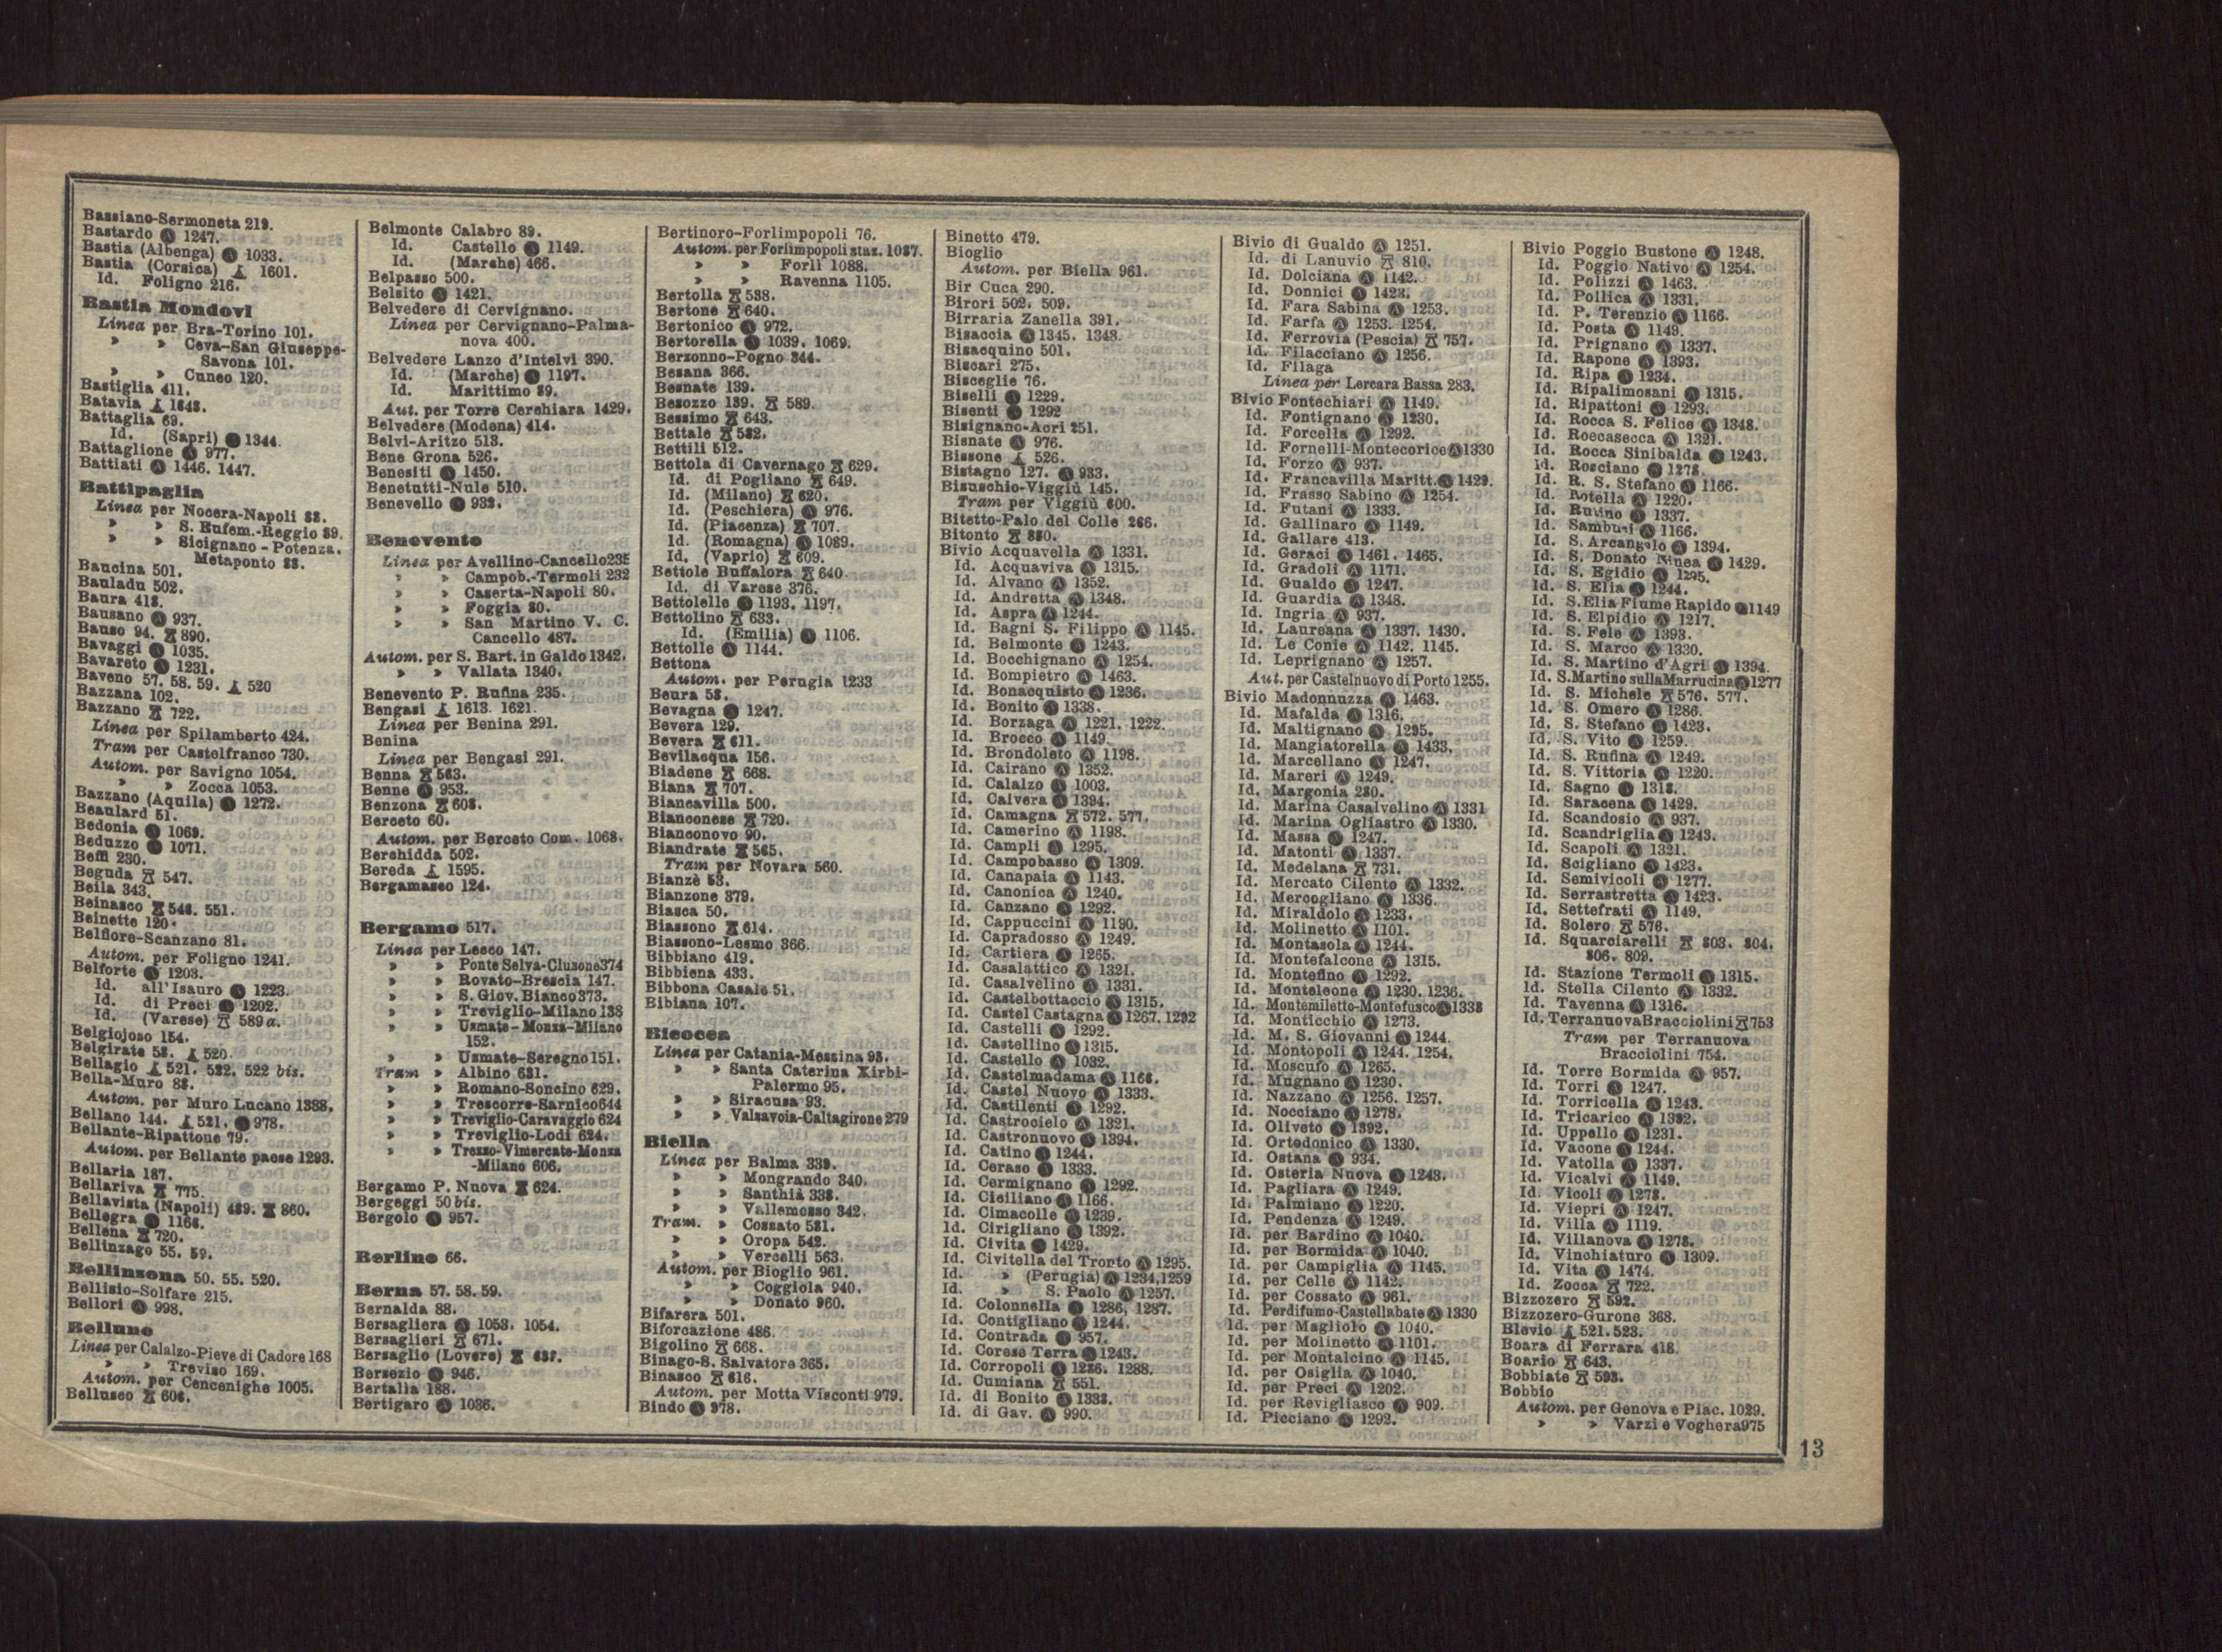 Bassiano-Sermoneta 219.
Bastardo Ⓐ 1247.
Bastia (Albenga) Ⓐ 1033.
Bastia (Corsica) 1601.
Id. Foligno 216.
Bastia Mondovì
Linea per Bra-Torino 101.
» » Ceva-San Giuseppe-
Savona 101.
» » Cuneo 120.
Bastiglia 411.
Batavia 1643.
Battaglia 69.
Id. (Sapri) Ⓐ 1344.
Battaglione Ⓐ 977.
Battiati Ⓐ 1446. 1447.
Battipaglia
Linea per Nocera-Napoli 88.
» » S. Eufem.-Reggio 89.
» » Sicignano - Potenza.
Metaponto 88.
Baucina 501.
Bauladu 502.
Baura 418.
Bausano Ⓐ 937.
Bauso 94. 890.
Bavaggi Ⓐ 1035.
Bavareto Ⓐ 1231.
Baveno 57. 58. 59. 520
Bazzana 102.
Bazzano 722.
Linea per Spilamberto 424.
Tram per Castelfranco 730.
Autom. per Savigno 1054.
» Zocca 1053.
Bazzano (Aquila) Ⓐ 1272.
Beaulard 51.
Bedonia Ⓐ 1069.
Beduzzo Ⓐ 1071.
Beffi 230.
Beguda 547.
Beila 343.
Beinasco 548. 551.
Beinette 120.
Belfiore-Scanzano 81.
Autom. per Foligno 1241.
Belforte Ⓐ 1203.
Id. all'Isauro Ⓐ 1223.
Id. di Preci Ⓐ 1202.
Id. (Varese) 589 a.
Belgiojoso 154.
Belgirate 58. 520.
Bellagio 521. 522. 522 bis.
Bella-Muro 88.
Autom. per Muro Lucano 1388.
Bellano 144. 521. Ⓐ 978.
Bellante-Ripattone 79.
Autom. per Bellante paese 1293.
Bellaria 187.
Bellariva 775.
Bellavista (Napoli) 489. 860.
Bellegra Ⓐ 1166.
Bellena 720.
Bellinzago 55. 59.
Bellinzona 50. 55. 520.
Bellisio-Solfare 215.
Bellori Ⓐ 998.
Belluno
Linea per Calalzo-Pieve di Cadore 168
» » Treviso 169.
Autom. per Cencenighe 1005.
Bellusco 606.
Belmonte Calabro 89.
Id. Castello Ⓐ 1149.
Id. (Marche) 466.
Belpasso 500.
Belsito Ⓐ 1421.
Belvedere di Cervignano.
Linea per Cervignano-Palma-
nova 400.
Belvedere Lanzo d'Intelvi 390.
Id. (Marche) Ⓐ 1197.
Id. Marittimo 89.
Aut. per Torre Cerchiara 1429.
Belvedere (Modena) 414.
Belvi-Aritzo 513.
Bene Grona 526.
Benesiti Ⓐ 1450.
Benetutti-Nule 510.
Benevello Ⓐ 932.
Benevento
Linea per Avellino-Cancello 235
» » Campob.-Termoli 232
» » Caserta-Napoli 80.
» » Foggia 80.
» » San Martino V. C.
Cancello 487.
Autom. per S. Bart. in Galdo 1342.
» » Vallata 1340.
Benevento P. Rufina 235.
Bengasi 1613. 1621.
Linea per Benina 291.
Benina
Linea per Bengasi 291.
Benna 563.
Benne Ⓐ 953.
Benzona 608.
Berceto 60.
Autom. per Berceto Com. 1068.
Berchidda 502.
Bereda 1595.
Bergamasco 124.
Bergamo 517.
Linea per Lecco 147.
» » Ponte Selva-Clusone 374
» » Rovato-Brescia 147.
» » S. Giov. Bianco 373.
» » Treviglio-Milano 138
» » Usmate-Monza-Milano
152.
» » Usmate-Seregno 151.
Tram » Albino 631.
» » Romano-Soncino 629.
» » Trescorre-Sarnico 644
» » Treviglio-Caravaggio 624
» » Treviglio-Lodi 624.
» » Trezzo-Vimercate-Monza
-Milano 606.
Bergamo P. Nuova 624.
Bergeggi 50 bis.
Bergolo Ⓐ 957.
Berlino 66.
Berna 57. 58. 59.
Bernalda 88.
Bersagliera Ⓐ 1053. 1054.
Bersaglieri 671.
Bersaglio (Lovere) 637.
Bersezio Ⓐ 946.
Bertalia 188.
Bertigaro Ⓐ 1036.
Bertinoro-Forlimpopoli 76.
Autom. per Forlimpopoli staz. 1087.
» » Forlì 1088.
» » Ravenna 1105.
Bertolla 538.
Bertone 640.
Bertonico Ⓐ 972.
Bertorella Ⓐ 1039. 1069.
Berzonno-Pogno 344.
Besana 366.
Besnate 139.
Besozzo 139. 589.
Bessimo 643.
Bettale 582.
Bettili 512.
Bettola di Cavernago 629.
Id. di Pogliano 649.
Id. (Milano) 620.
Id. (Peschiera) Ⓐ 976.
Id. (Piacenza) 707.
Id. (Romagna) Ⓐ 1089.
Id. (Vaprio) 609.
Bettole Buffalora 640.
Id. di Varese 376.
Bettolelle Ⓐ 1193. 1197.
Bettolino 633.
Id. (Emilia) Ⓐ 1106.
Bettolle Ⓐ 1144.
Bettona
Autom. per Perugia 1233
Beura 58.
Bevagna Ⓐ 1247.
Bevera 129.
Bevera 611.
Bevilacqua 156.
Biadene 668.
Biana 707.
Biancavilla 500.
Bianconese 720.
Bianconovo 90.
Biandrate 565.
Tram per Novara 560.
Bianzè 53.
Bianzone 379.
Biasca 50.
Biassono 614.
Biassono-Lesmo 366.
Bibbiano 419.
Bibbiena 433.
Bibbona Casale 51.
Bibiana 107.
Bicocca
Linea per Catania-Messina 93.
» » Santa Caterina Xirbi-
Palermo 95.
» » Siracusa 93.
» » Valsavoia-Caltagirone 279
Biella
Linea per Balma 339.
» » Mongrando 340.
» » Santhià 338.
» » Vallemosso 342.
Tram. » Cossato 581.
» » Oropa 542.
» » Vercelli 563.
Autom. per Bioglio 961.
» » Coggiola 940.
» » Donato 960.
Bifarera 501.
Biforcazione 486.
Bigolino 668.
Binago-S. Salvatore 365.
Binasco 616.
Autom. per Motta Visconti 979.
Bindo Ⓐ 978.
Binetto 479.
Bioglio
Autom. per Biella 961.
Bir Cuca 290.
Birori 502. 509.
Birraria Zanella 391.
Bisaccia Ⓐ 1345. 1348.
Bisacquino 501.
Biscari 275.
Bisceglie 76.
Biselli Ⓐ 1229.
Bisenti Ⓐ 1292
Bisignano-Acri 251.
Bisnate Ⓐ 976.
Bissone 526.
Bistagno 127. Ⓐ 933.
Bisuschio-Viggiù 145.
Tram per Viggiù 600.
Bitetto-Palo del Colle 266.
Bitonto 880.
Bivio Acquavella Ⓐ 1331.
Id. Acquaviva Ⓐ 1315.
Id. Alvano Ⓐ 1352.
Id. Andretta Ⓐ 1348.
Id. Aspra Ⓐ 1244.
Id. Bagni S. Filippo Ⓐ 1145.
Id. Belmonte Ⓐ 1243.
Id. Bocchignano Ⓐ 1254.
Id. Bompietro Ⓐ 1463.
Id. Bonacquisto Ⓐ 1236.
Id. Bonito Ⓐ 1338.
Id. Borzaga Ⓐ 1221. 1222.
Id. Brocco Ⓐ 1149.
Id. Brondoleto Ⓐ 1198.
Id. Cairano Ⓐ 1352.
Id. Calalzo Ⓐ 1003.
Id. Calvera Ⓐ 1394.
Id. Camagna 572. 577.
Id. Camerino Ⓐ 1198.
Id. Campli Ⓐ 1295.
Id. Campobasso Ⓐ 1309.
Id. Canapaia Ⓐ 1143.
Id. Canonica Ⓐ 1240.
Id. Canzano Ⓐ 1292.
Id. Cappuccini Ⓐ 1190.
Id. Capradosso Ⓐ 1249.
Id. Cartiera Ⓐ 1265.
Id. Casalattico Ⓐ 1321.
Id. Casalvelino Ⓐ 1331.
Id. Castelbottaccio Ⓐ 1315.
Id. Castel Castagna Ⓐ 1267. 1292
Id. Castelli Ⓐ 1292.
Id. Castellino Ⓐ 1315.
Id. Castello Ⓐ 1032.
Id. Castelmadama Ⓐ 1166.
Id. Castel Nuovo Ⓐ 1333.
Id. Castilenti Ⓐ 1292.
Id. Castrocielo Ⓐ 1321.
Id. Castronuovo Ⓐ 1394.
Id. Catino Ⓐ 1244.
Id. Ceraso Ⓐ 1333.
Id. Cermignano Ⓐ 1292.
Id. Ciciliano Ⓐ 1166.
Id. Cimacolle Ⓐ 1239.
Id. Cirigliano Ⓐ 1392.
Id. Civita Ⓐ 1429.
Id. Civitella del Tronto Ⓐ 1295.
Id. » (Perugia) Ⓐ 1234,1259
Id. » S. Paolo Ⓐ 1257.
Id. Colonnella Ⓐ 1286, 1287.
Id. Contigliano Ⓐ 1244.
Id. Contrada Ⓐ 957.
Id. Corese Terra Ⓐ 1243.
Id. Corropoli Ⓐ 1286. 1288.
Id. Cumiana 551.
Id. di Bonito Ⓐ 1338.
Id. di Gav. Ⓐ 990.
Bivio di Gualdo Ⓐ 1251.
Id. di Lanuvio 810.
Id. Dolciana Ⓐ 1142.
Id. Donnici Ⓐ 1423.
Id. Fara Sabina Ⓐ 1253.
Id. Farfa Ⓐ 1253. 1254.
Id. Ferrovia (Pescia) 757.
Id. Filacciano Ⓐ 1256.
Id. Filaga
Linea per Lercara Bassa 283.
Bivio Fontechiari Ⓐ 1149.
Id. Fontignano Ⓐ 1230.
Id. Forcella Ⓐ 1292.
Id. Fornelli-Montecorice Ⓐ 1330
Id. Forzo Ⓐ 937.
Id. Francavilla Maritt. Ⓐ 1429.
Id. Frasso Sabino Ⓐ 1254.
Id. Futani Ⓐ 1333.
Id. Gallinaro Ⓐ 1149.
Id. Gallare 413.
Id. Geraci Ⓐ 1461. 1465.
Id. Gradoli Ⓐ 1171.
Id. Gualdo Ⓐ 1247.
Id. Guardia Ⓐ 1348.
Id. Ingria Ⓐ 937.
Id. Laureana Ⓐ 1337. 1430.
Id. Le Conie Ⓐ 1142. 1145.
Id. Leprignano Ⓐ 1257.
Aut. per Castelnuovo di Porto 1255.
Bivio Madonnuzza Ⓐ 1463.
Id. Mafalda Ⓐ 1316.
Id. Maltignano Ⓐ 1295.
Id. Mangiatorella Ⓐ 1433.
Id. Marcellano Ⓐ 1247.
Id. Mareri Ⓐ 1249.
Id. Margonia 280.
Id. Marina Casalvelino Ⓐ 1331
Id. Marina Ogliastro Ⓐ 1330.
Id. Massa Ⓐ 1247.
Id. Matonti Ⓐ 1337.
Id. Medelana 731.
Id. Mercato Cilento Ⓐ 1332.
Id. Mercogliano Ⓐ 1336.
Id. Miraldolo Ⓐ 1233.
Id. Molinetto Ⓐ 1101.
Id. Montasola Ⓐ 1244.
Id. Montefalcone Ⓐ 1315.
Id. Montefino Ⓐ 1292.
Id. Monteleone Ⓐ 1230. 1236.
Id. Montemiletto-Montefusco Ⓐ 1338
Id. Monticchio Ⓐ 1273.
Id. M. S. Giovanni Ⓐ 1244.
Id. Montopoli Ⓐ 1244. 1254.
Id. Moscufo Ⓐ 1265.
Id. Mugnano Ⓐ 1230.
Id. Nazzano Ⓐ 1256. 1257.
Id. Nocciano Ⓐ 1278.
Id. Oliveto Ⓐ 1392.
Id. Ortodonico Ⓐ 1330.
Id. Ostana Ⓐ 934.
Id. Osteria Nuova Ⓐ 1243.
Id. Pagliara Ⓐ 1249.
Id. Palmiano Ⓐ 1220.
Id. Pendenza Ⓐ 1249.
Id. per Bardino Ⓐ 1040.
Id. per Bormida Ⓐ 1040.
Id. per Campiglia Ⓐ 1145.
Id. per Celle Ⓐ 1142.
Id. per Cossato Ⓐ 961.
Id. Perdifumo-Castellabate Ⓐ 1330
Id. per Magliolo Ⓐ 1040.
Id. per Molinetto Ⓐ 1101.
Id. per Montalcino Ⓐ 1145.
Id. per Osiglia Ⓐ 1040.
Id. per Preci Ⓐ 1202.
Id. per Revigliasco Ⓐ 909.
Id. Picciano Ⓐ 1292.
Bivio Poggio Bustone Ⓐ 1248.
Id. Poggio Nativo Ⓐ 1254.
Id. Polizzi Ⓐ 1463.
Id. Pollica Ⓐ 1331.
Id. P. Terenzio Ⓐ 1166.
Id. Posta Ⓐ 1149.
Id. Prignano Ⓐ 1337.
Id. Rapone Ⓐ 1393.
Id. Ripa Ⓐ 1234.
Id. Ripalimosani Ⓐ 1315.
Id. Ripattoni Ⓐ 1293.
Id. Rocca S. Felice Ⓐ 1348.
Id. Roccasecca Ⓐ 1321.
Id. Rocca Sinibalda Ⓐ 1243.
Id. Rosciano Ⓐ 1278.
Id. R. S. Stefano Ⓐ 1166.
Id. Rotella Ⓐ 1220.
Id. Rutino Ⓐ 1337.
Id. Sambuci Ⓐ 1166.
Id. S. Arcangelo Ⓐ 1394.
Id. S. Donato Ninea Ⓐ 1429.
Id. S. Egidio Ⓐ 1295.
Id. S. Elia Ⓐ 1244.
Id. S. Elia Fiume Rapido Ⓐ 1149
Id. S. Elpidio Ⓐ 1217.
Id. S. Fele Ⓐ 1393.
Id. S. Marco Ⓐ 1330.
Id. S. Martino d'Agri Ⓐ 1394.
Id. S. Martino sulla Marrucina Ⓐ 1277
Id. S. Michele 576. 577.
Id. S. Omero Ⓐ 1286.
Id. S. Stefano Ⓐ 1423.
Id. S. Vito Ⓐ 1259.
Id. S. Rufina Ⓐ 1249.
Id. S. Vittoria Ⓐ 1220.
Id. Sagno Ⓐ 1318.
Id. Saracena Ⓐ 1429.
Id. Scandosio Ⓐ 937.
Id. Scandriglia Ⓐ 1243.
Id. Scapoli Ⓐ 1321.
Id. Scigliano Ⓐ 1423.
Id. Semivicoli Ⓐ 1277.
Id. Serrastretta Ⓐ 1423.
Id. Settefrati Ⓐ 1149.
Id. Solero 576.
Id. Squarciarelli 803. 804.
806. 809.
Id. Stazione Termoli Ⓐ 1315.
Id. Stella Cilento Ⓐ 1332.
Id. Tavenna Ⓐ 1316.
Id. Terranuova Bracciolini 753
Tram per Terranuova
Bracciolini 754.
Id. Torre Bormida Ⓐ 957.
Id. Torri Ⓐ 1247.
Id. Torricella Ⓐ 1243.
Id. Tricarico Ⓐ 1392.
Id. Uppello Ⓐ 1231.
Id. Vacone Ⓐ 1244.
Id. Vatolla Ⓐ 1337.
Id. Vicalvi Ⓐ 1149.
Id. Vicoli Ⓐ 1278.
Id. Viepri Ⓐ 1247.
Id. Villa Ⓐ 1119.
Id. Villanova Ⓐ 1278.
Id. Vinchiaturo Ⓐ 1309.
Id. Vita Ⓐ 1474.
Id. Zocca 722.
Bizzozero 592.
Bizzozero-Gurone 368.
Blevio 521. 523.
Boara di Ferrara 418.
Boario 643.
Bobbiate 593.
Bobbio
Autom. per Genova e Piac. 1029.
» » Varzi e Voghera 975
13